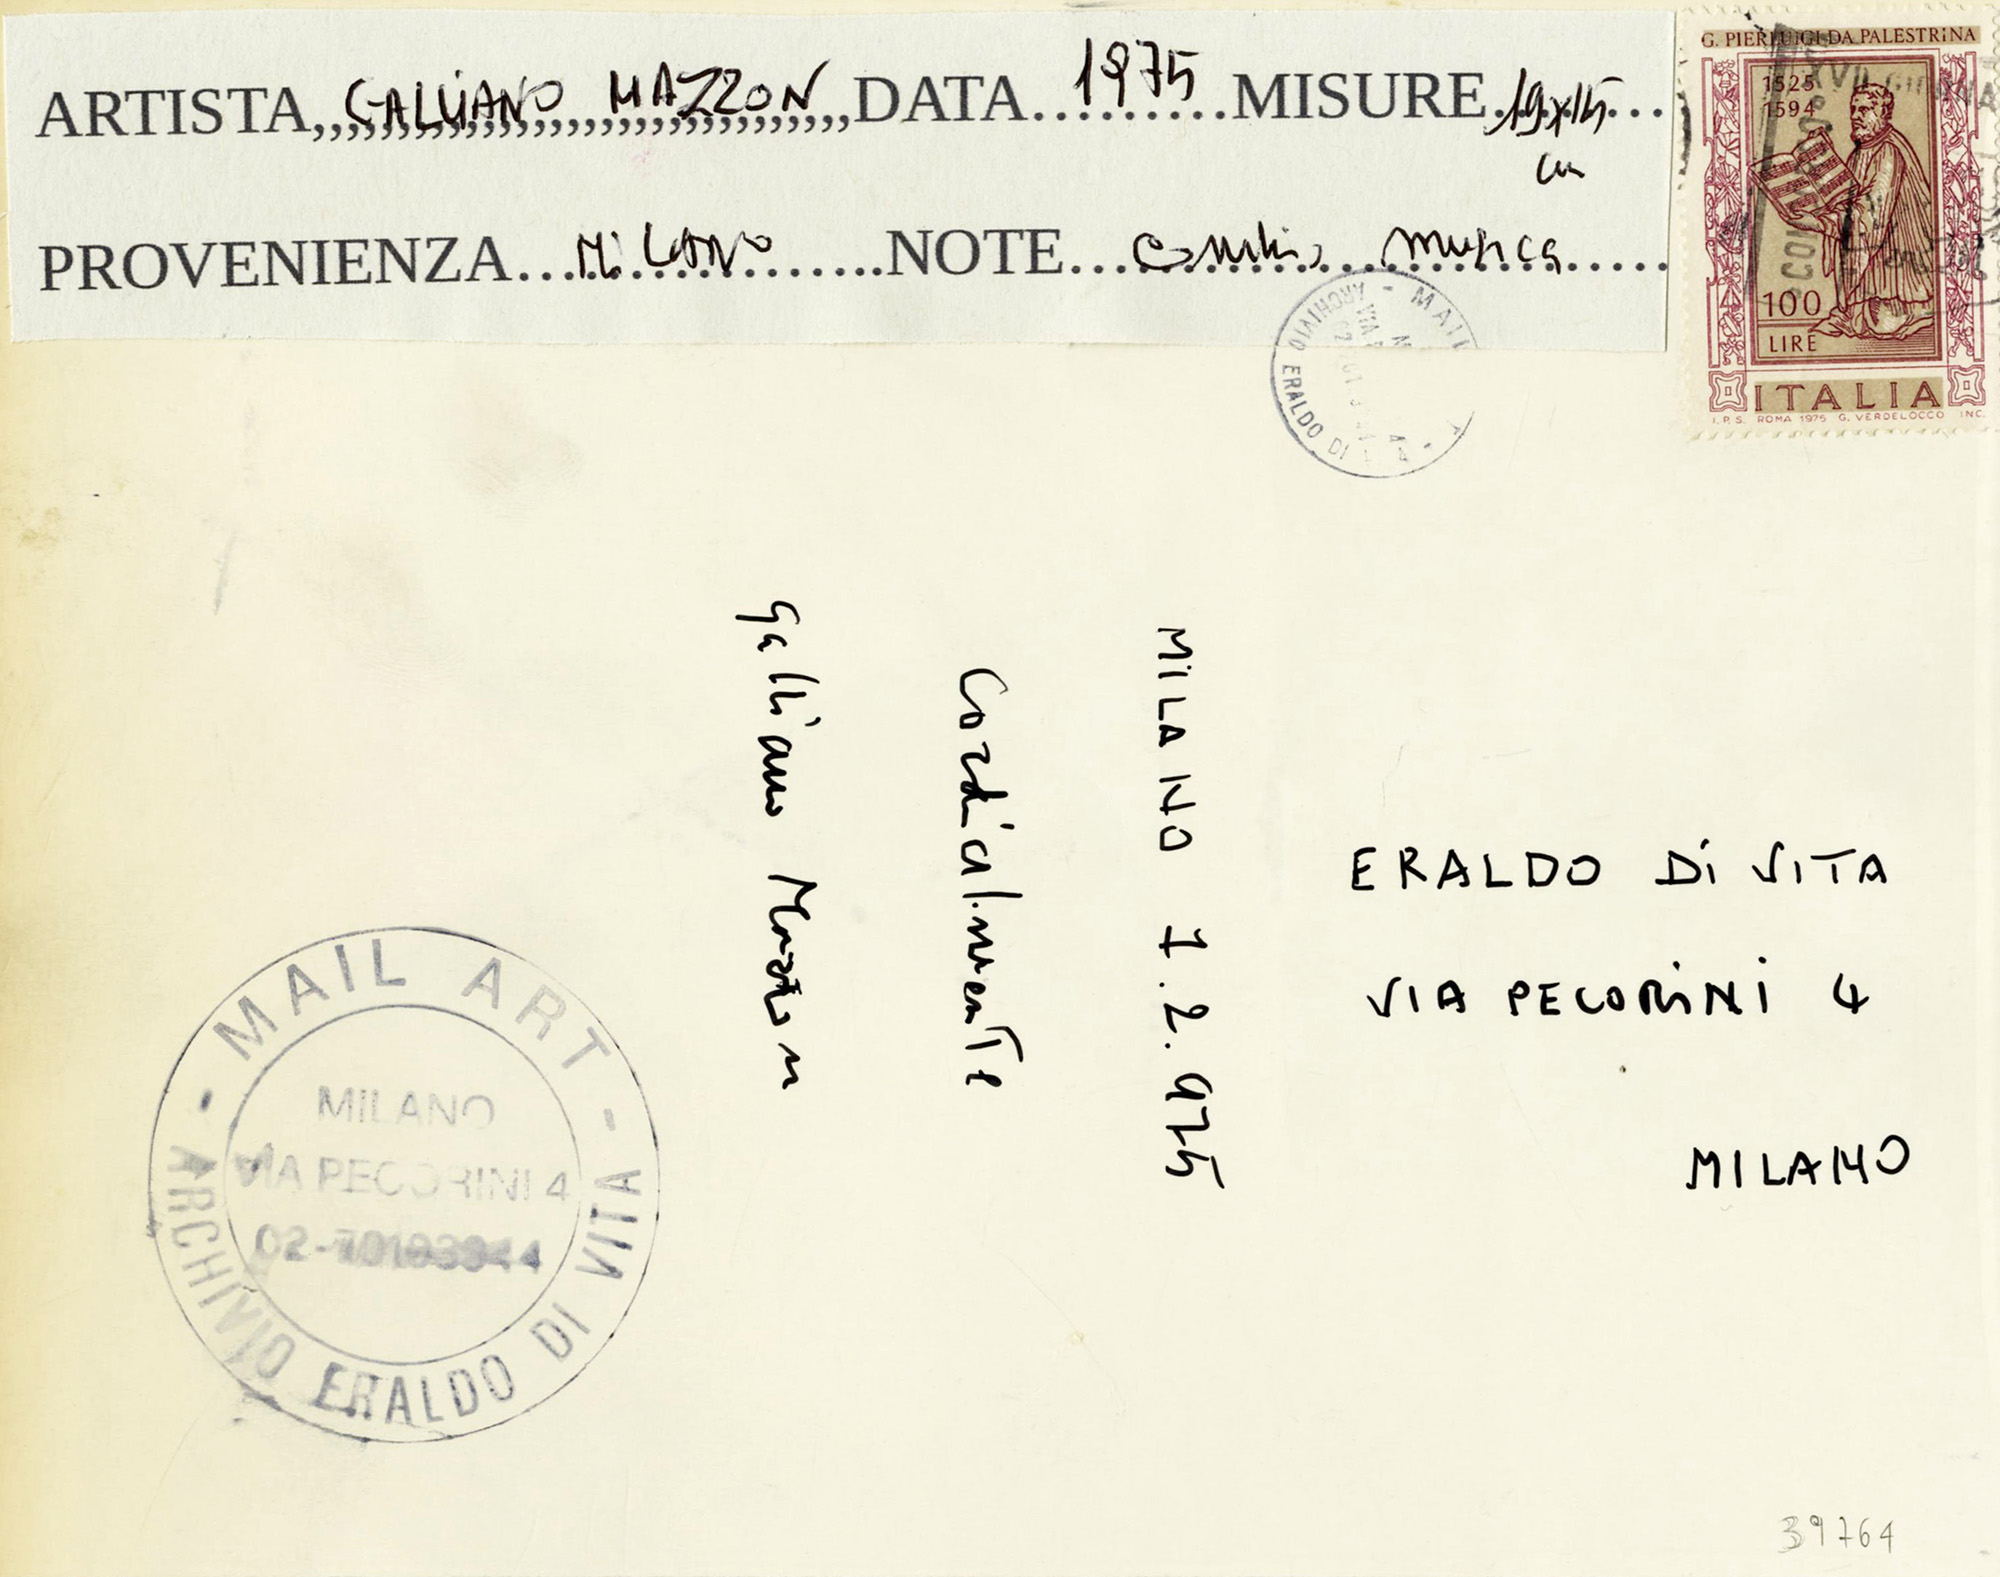 ARTISTA,,,,,,,,,,,,,,,,,,,,,,,,,,,,,,,,,,,,DATA.........MISURE.........
GALLIANO MAZZON 1975 19x15 cm
PROVENIENZA..................NOTE.............................
MILANO musica
G. PIERLUIGI DA PALESTRINA
1525
1594
100
LIRE
ITALIA
I.P.S. ROMA 1975 G. VERDELOCCO INC.
ARCHIVIO ERALDO DI
MAIL
VIA
MILANO 7.2.975
Cordialmente
Galliano Mazzon
ERALDO Di VITA
VIA PECORiNi 4
MILANO
- MAIL ART -
MILANO
VIA PECORINI 4
ARCHIVIO ERALDO DI VITA
39764